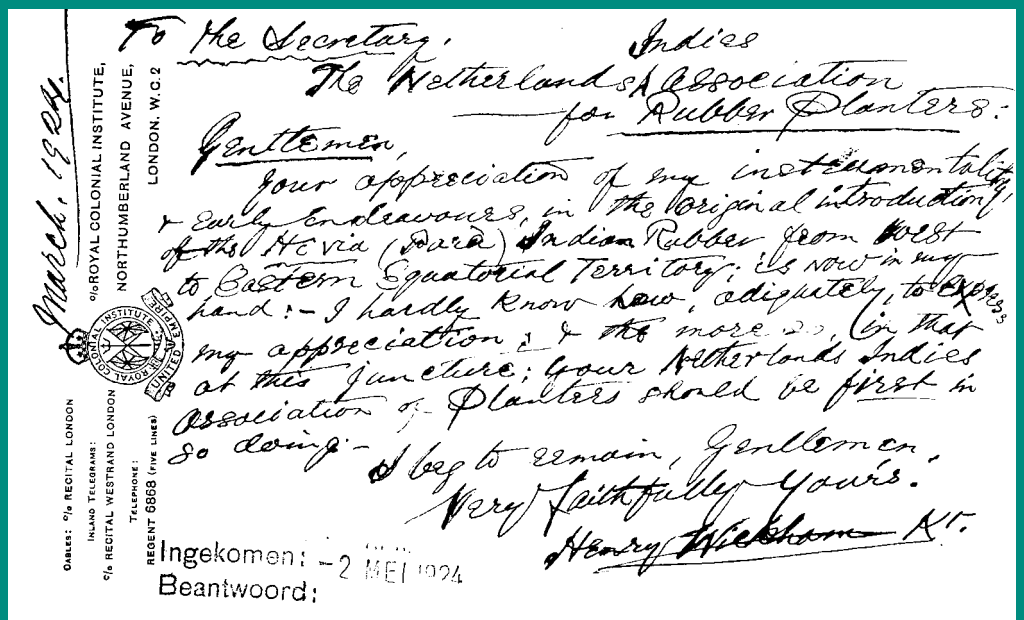 March. 1924.
c/o ROYAL COLONIAL INSTITUTE,
NORTHUMBERLAND AVENUE,
LONDON. W.C. 2
ROYAL COLONIAL INSTITUTE
UNITED EMPIRE
CABLES: c/o RECITAL LONDON
INLAND TELEGRAMS:
c/o RECITAL WESTRAND LONDON
TELEPHONE:
REGENT 6868 (FIVE LINES)
To the Secretary.
Indies
The Netherlands Association
for Rubber Planters:
Gentlemen,
Your appreciation of my instrumentality,
& early Endeavours, in the original introduction
of the Hevia (Pará) Indian Rubber from West
to Eastern Equatorial Territory; is now in my
hand:- I hardly know how, adiquately, to express
my appreciation; & the more so, in that
at this juncture; your Netherlands Indies
Association of Planters should be first in
so doing:-
I beg to remain, Gentlemen.
Very faithfully Yours.
Henry Wickham Kt.
Ingekomen: -2 MEI 1924
Beantwoord: